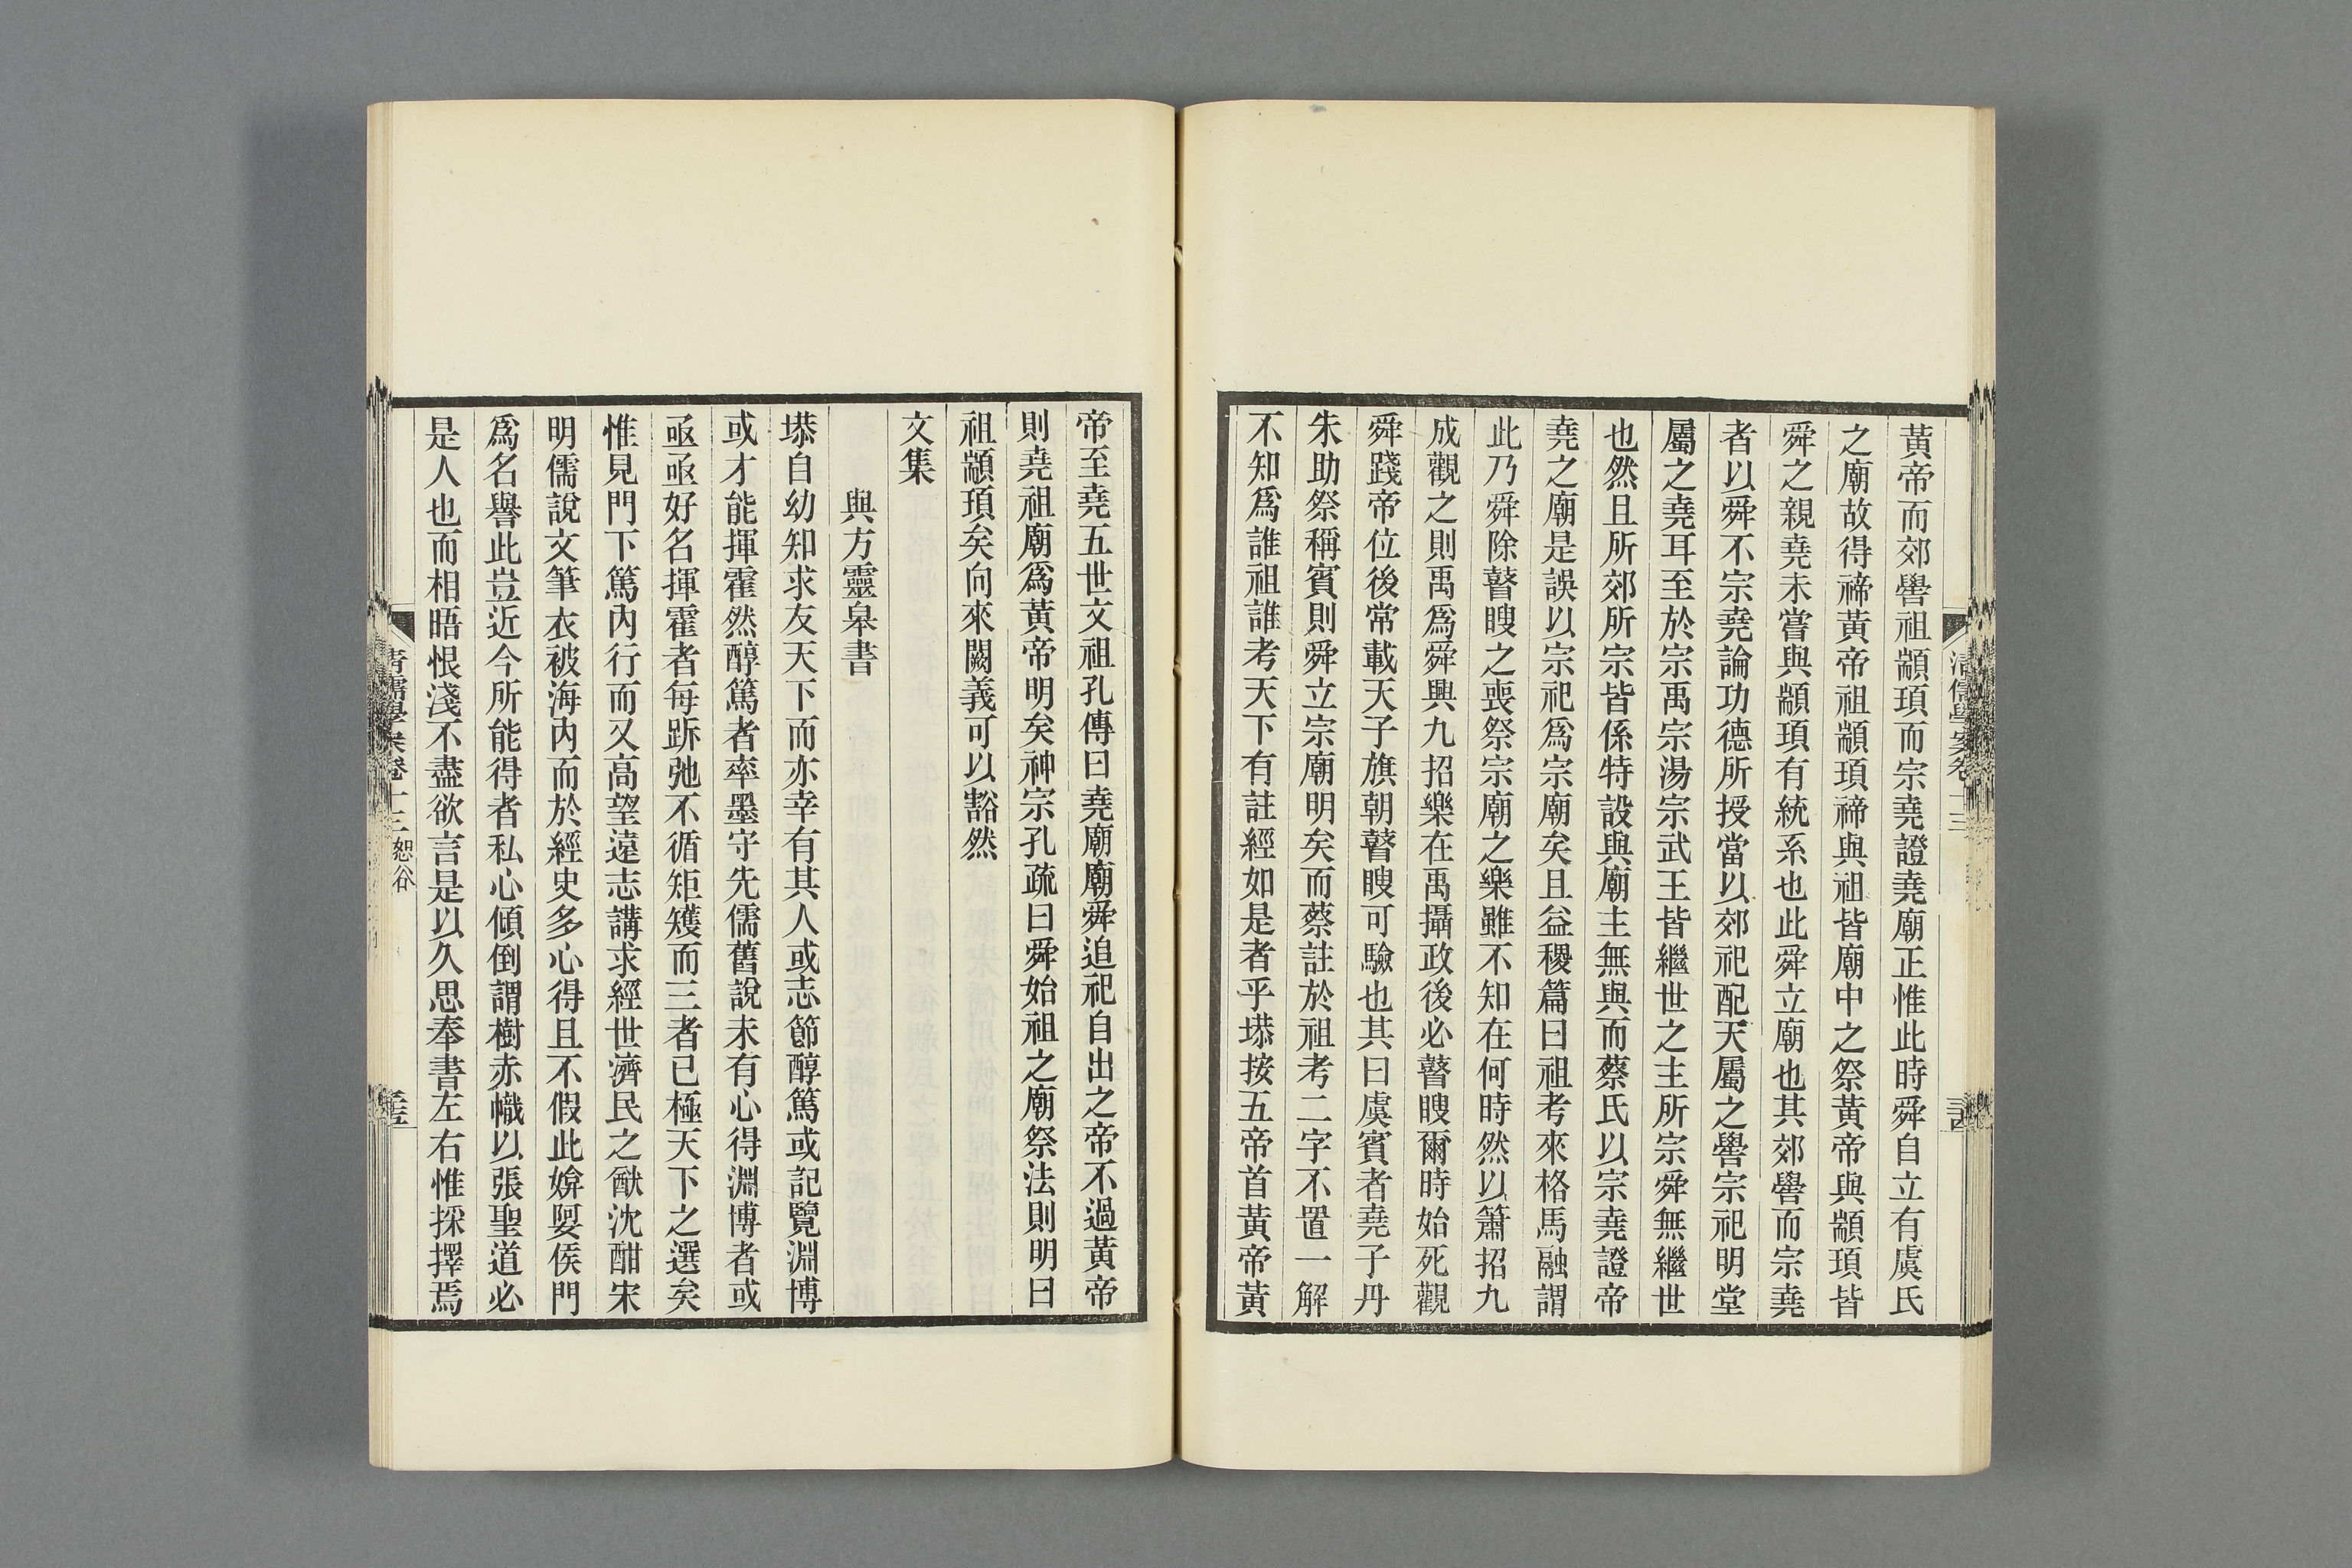 黃帝而郊嚳祖顓頊而宗堯證堯廟正惟此時舜自立有虞氏
之廟故得禘黃帝祖顓頊禘與祖皆廟中之祭黃帝與顓頊皆
舜之親堯未嘗與顓頊有統系也此舜立廟也其郊嚳而宗堯
者以舜不宗堯論功德所授當以郊祀配天屬之嚳宗祀明堂
屬之堯耳至於宗禹宗湯宗武王皆繼世之主所宗舜無繼世
也然且所郊所宗皆係特設與廟主無與而蔡氏以宗堯證帝
堯之廟是誤以宗祀爲宗廟矣且益稷篇曰祖考來格馬融謂
此乃舜除瞽瞍之喪祭宗廟之樂雖不知在何時然以簫招九
成觀之則禹爲舜興九招樂在禹攝政後必瞽瞍爾時始死觀
舜踐帝位後常載天子旗朝瞽瞍可驗也其曰虞賓者堯子丹
朱助祭稱賓則舜立宗廟明矣而蔡註於祖考二字不置一解
不知爲誰祖誰考天下有註經如是者乎塨按五帝首黃帝黃
清儒學案卷十三
帝至堯五世文祖孔傳曰堯廟廟舜追祀自出之帝不過黃帝
則堯祖廟爲黃帝明矣神宗孔疏曰舜始祖之廟祭法則明曰
祖顓頊矣向來闕義可以豁然
文集
與方靈皋書
塨自幼知求友天下而亦幸有其人或志節醇篤或記覽淵博
或才能揮霍然醇篤者率墨守先儒舊說未有心得淵博者或
亟亟好名揮霍者每跅弛不循矩矱而三者已極天下之選矣
惟見門下篤內行而又高望遠志講求經世濟民之猷沈酣宋
明儒說文筆衣被海內而於經史多心得且不假此媕娿侯門
爲名譽此豈近今所能得者私心傾倒謂樹赤幟以張聖道必
是人也而相晤恨淺不盡欲言是以久思奉書左右惟採擇焉
清儒學案卷十三 恕谷